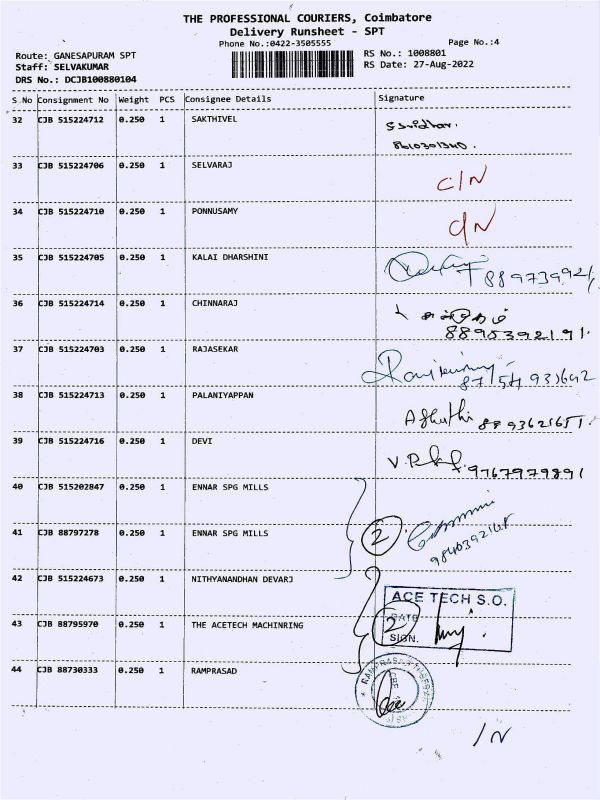 THE PROFESSIONAL COURIERS, Coimbatore
Delivery Runsheet - SPT
Phone No.:0422-3505555
Page No.:4
Route: GANESAPURAM SPT
RS No.: 1008801
Staff: SELVAKUMAR
RS Date: 27-Aug-2022
DRS No.: DCJB100880104
S.No Consignment No Weight PCS Consignee Details Signature
32 CJB 515224712 0.250 1 SAKTHIVEL
8610301340
33 CJB 515224706 0.250 1 SELVARAJ C/N
34 CJB 515224710 0.250 1 PONNUSAMY
35 CJB 515224705 0.250 1 KALAI DHARSHINI
889739921
36 CJB 515224714 0.250 1 CHINNARAJ
8895392191.
37 CJB 515224703 0.250 1 RAJASEKAR
38 CJB 515224713 0.250 1 PALANIYAPPAN
8893621651.
39 CJB 515224716 0.250 1 DEVI
9767979891
40 CJB 515202847 0.250 1 ENNAR SPG MILLS
41 CJB 88797278 0.250 1 ENNAR SPG MILLS 2
42 CJB 515224673 0.250 1 NITHYANANDHAN DEVARJ
ACE TECH S.O.
43 CJB 88795970 0.250 1 THE ACETECH MACHINRING 2
DATE
SIGN.
44 CJB 88730333 0.250 1 RAMPRASAD